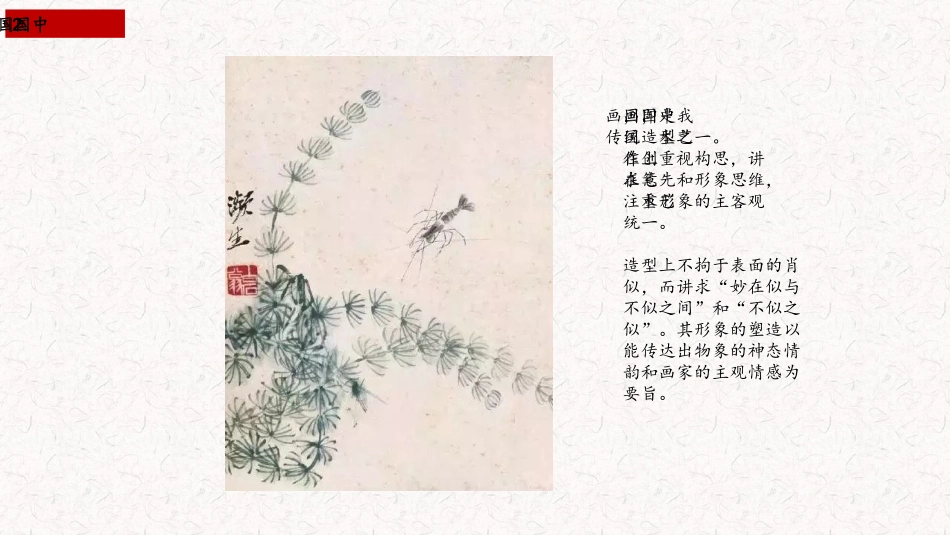 传统造型艺 一。
重视构思，讲
先和形象思维，
注重 形象的主客观
统一。
造型上不拘于表面的肖
似，而讲求“妙在似与
不似之间”和“不似之
似”。其形象的塑造以
能传达出物象的神态情
韵和画家的主观情感为
要旨。
濒生